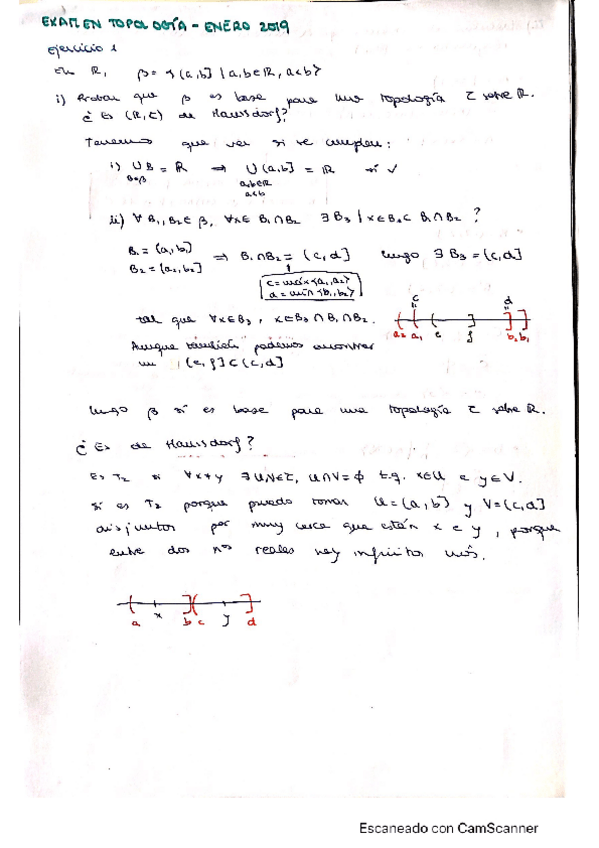 EXAMEN TOPOLOGÍA - ENERO 2019
Ejercicio 1
En R, β = {(a,b] | a,b∈R, a<b}
i) Probar que β es base para una topología τ sobre R.
¿Es (R,τ) de Hausdorf?
Tenemos que ver si se cumplen:
i) ∪B = R ⇒ ∪(a,b] = R sí ✓
B∈β a,b∈R
a<b
ii) ∀B₁,B₂∈β, ∀x∈B₁∩B₂ ∃B₃ | x∈B₃⊂B₁∩B₂ ?
B₁ = (a₁,b₁]
B₂ = (a₂,b₂] ⇒ B₁∩B₂ = (c,d] luego ∃B₃ = (c,d]
c = máx{a₁,a₂}
d = mín{b₁,b₂}
tal que ∀x∈B₃, x∈B₃∩B₁∩B₂.
c d
a₂ a₁ e f b₂ b₁
Aunque también podemos encontrar
un (e,f]⊂(c,d]
luego β sí es base para una topología τ sobre R.
¿Es de Hausdorf?
Es T₂ si ∀x≠y ∃U,V∈τ, U∩V=∅ t.q. x∈U e y∈V.
Sí es T₂ porque puedo tomar U=(a,b] y V=(c,d]
disjuntos por muy cerca que estén x e y, porque
entre dos nos reales hay infinitos más.
a x b c y d
Escaneado con CamScanner